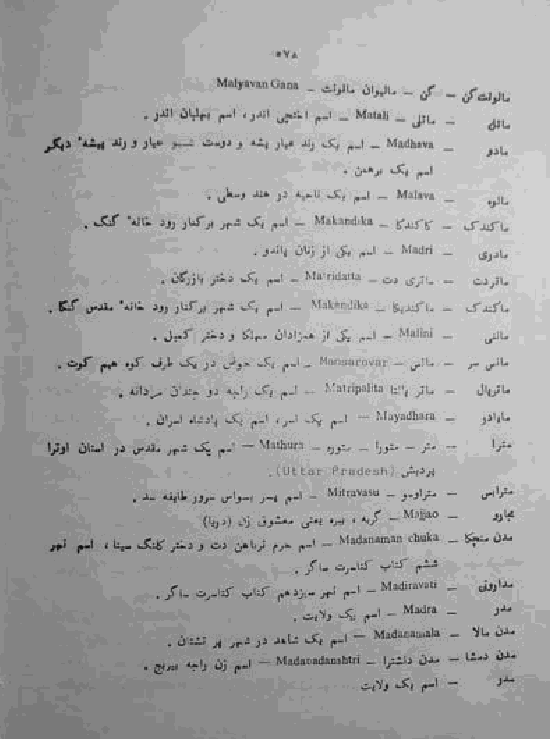 ۵۷۸
مالوت گن — گن — مالیوان مالوت — Malyavan Gana
ماتلی — ماتلی — Matali — اسم اندر، اسم بهلبان اندر.
مادو — Madhava — اسم یک رند عیار پیشه و دوست شیو عیار و رند پیشهٔ دیگر
اسم یک برهمن.
مالوه — Malava — اسم یک ناحیه در هند وسطی.
ماکندک — کاکندکا — Makandika — اسم یک شهر برکنار رود خانهٔ گنگ.
مادری — Madri — اسم یکی از زنان پاندو.
ماتردت — ماتری دت — Matridatta — اسم یک دختر بازرگان.
ماکندک — ماکندیکا — Makandika — اسم یک شهر برکنار رود خانهٔ مقدس گنگا.
مالنی — Malini — اسم یکی از همزادان و دختر
مانس سر — مانس — Mansarovar — اسم یک حوض در یک طرف کوه هیم کوت.
ماترپال — ماتر پالتا Matripalita — اسم یک راجه دو چندان مردانه.
مایادو — Mayadhara — اسم یک اسر، اسم یک پادشاه اسران.
مترا — متر — متورا — متوره — Mathura — اسم یک شهر مقدس در استان اوترا
پردیش (Uttar Pradesh).
مترابس — متراوسو — Mitravasu — اسم پسر بسواس سرور طایفه سد.
Majjao — گربه، یعنی معشوق زن (دریا)
مدن منچکا — Madanaman chuka — اسم حرم نرباهن دت و دختر کلنگ سینا، اسم نهر
ششم کتاب کتاسرت ساگر.
مداروتی — Madiravati — اسم نهر سیزدهم کتاب کتاسرت ساگر.
مدر — Madra — اسم یک ولایت.
مدن مالا — Madanamala — اسم یک شاهد در شهر
مدن دمشا — مدن دنشترا — Madanadanshtri — اسم زن راجه
مدر — اسم یک ولایت